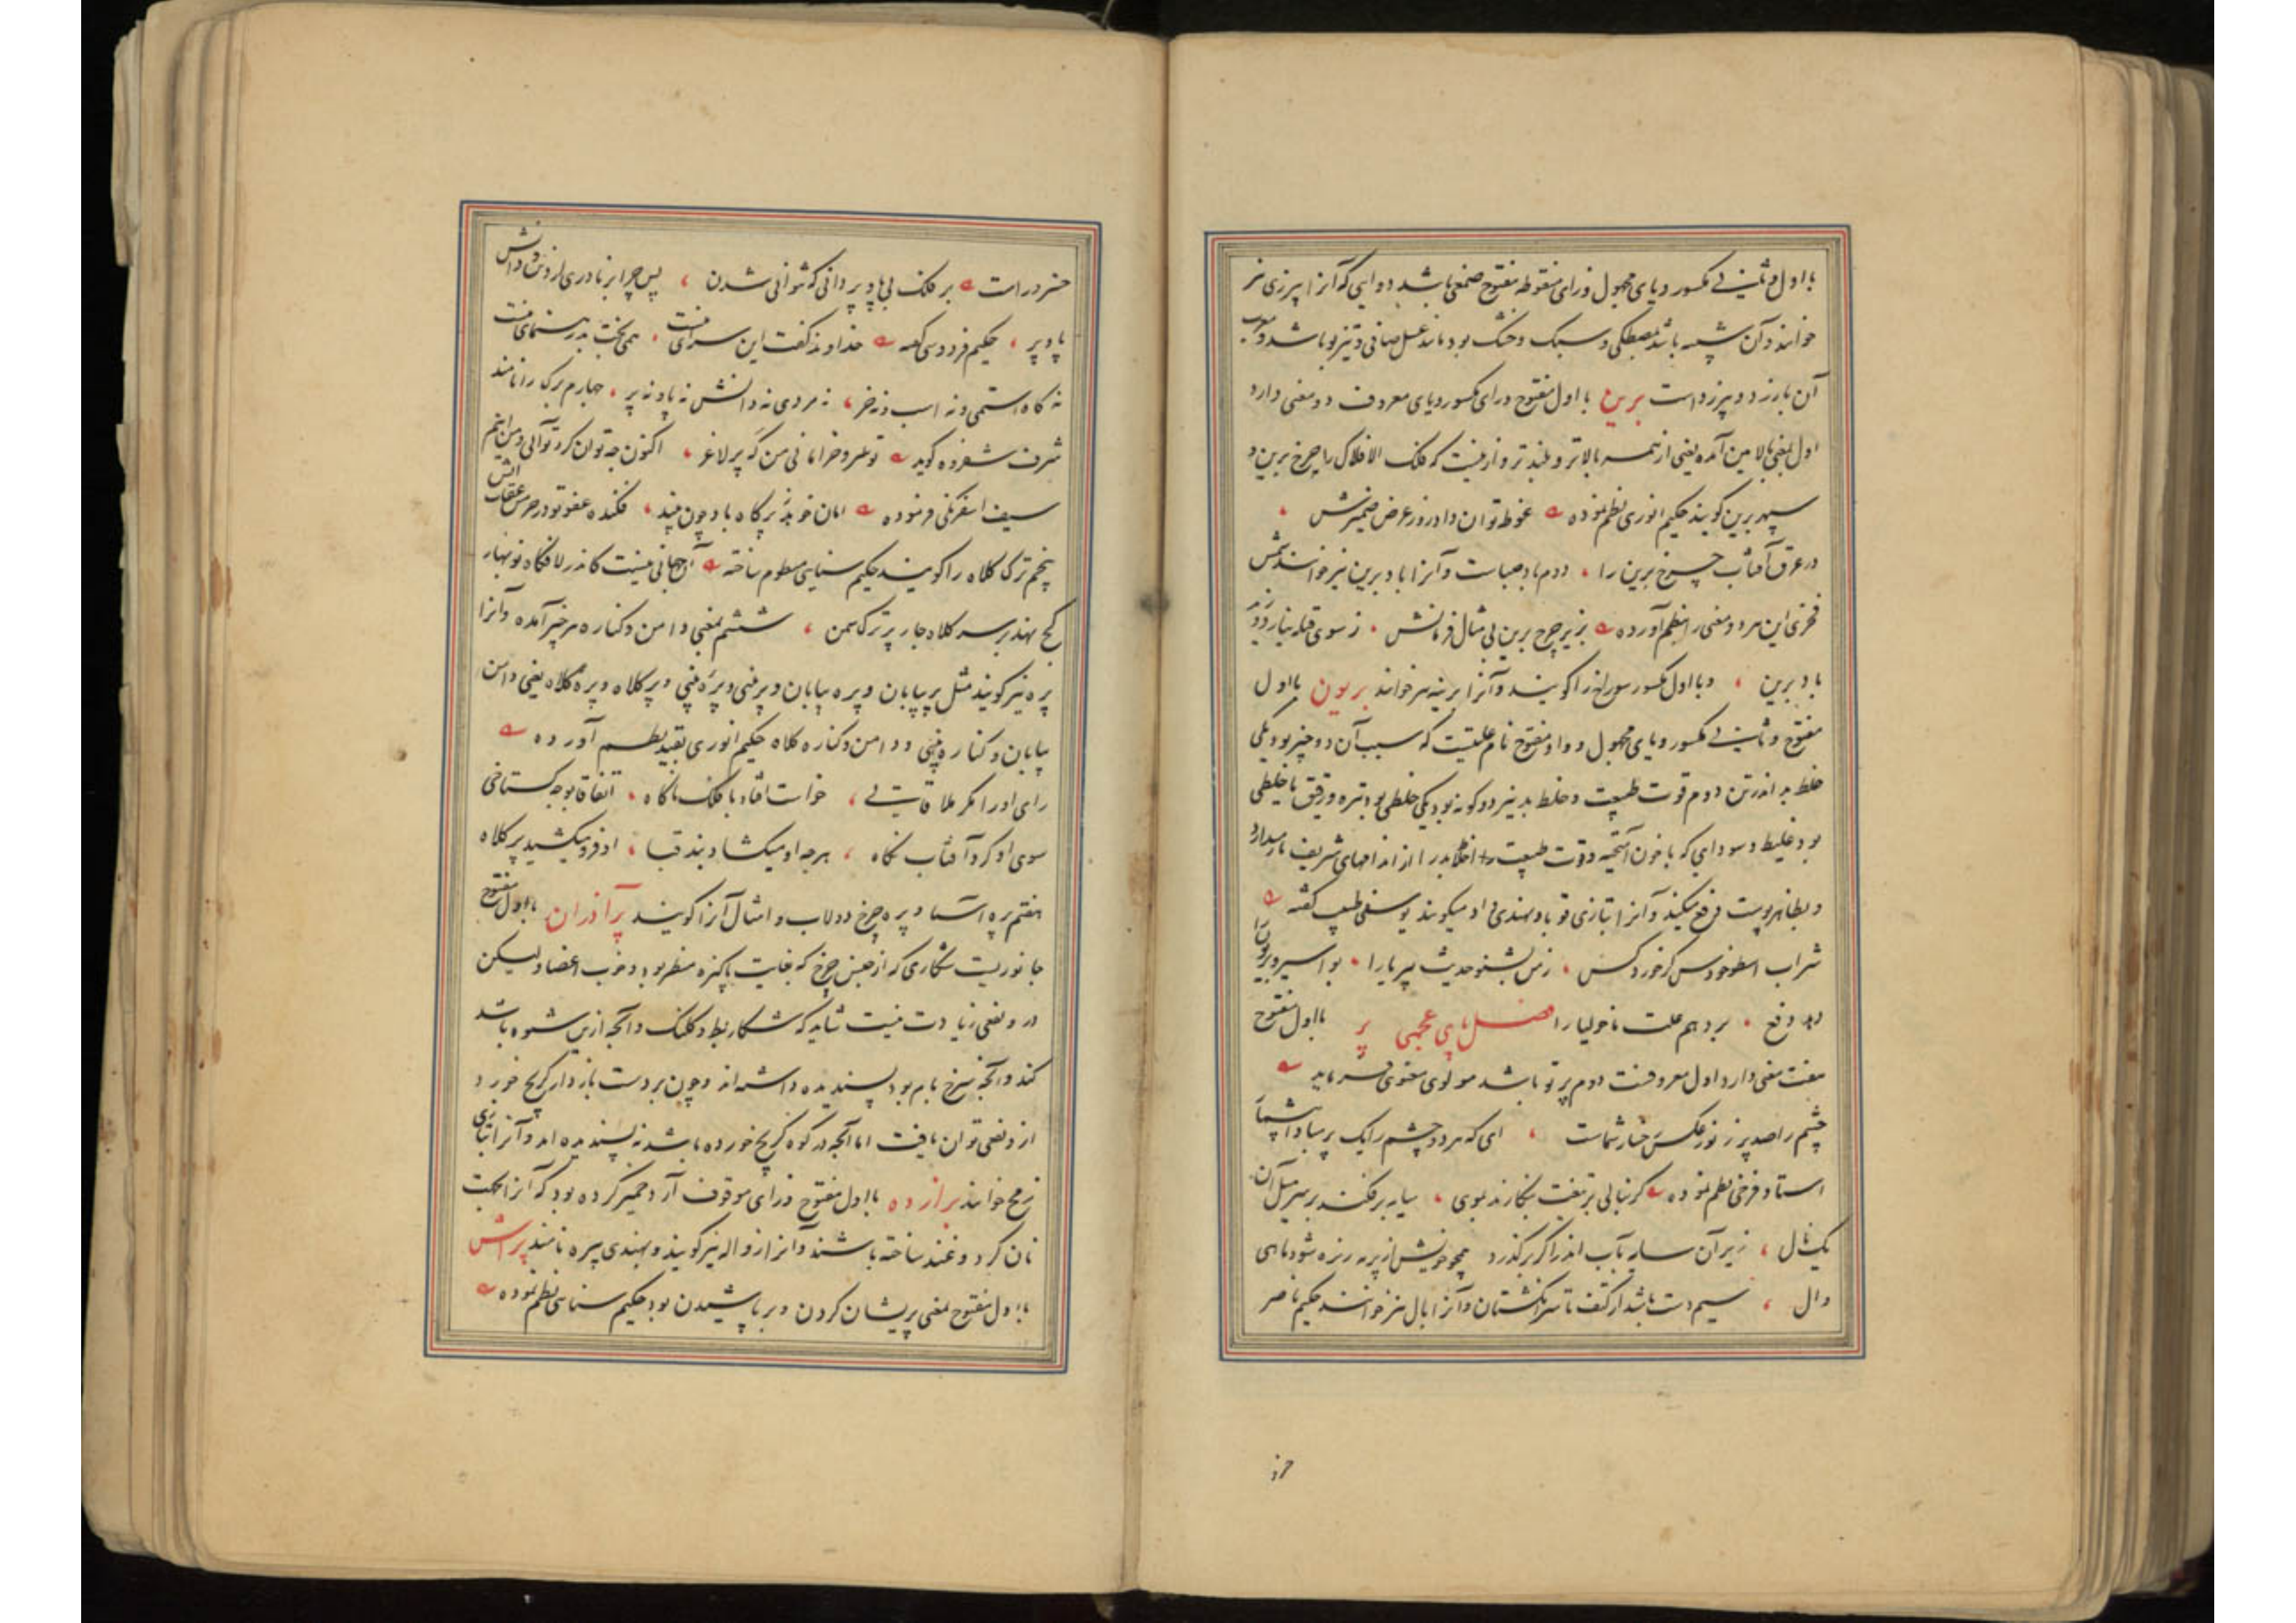 با اول و ثانی مکسور و یای مجهول و زای منقوطه مفتوح صمغی باشد دوایی که آنرا پیرزی نیز
خوانند و آن شبیه باشد بمصطکی و سبک و خشک بود مانند عسل صافی و تیزبو باشد و معرب
آن بارزد و بیرزد است برین با اول مفتوح و رای مکسور و یای معروف دو معنی دارد
اول بمعنی بالایین آمده یعنی از همه بالاتر و بلندتر و ازینست که فلک الافلاک را چرخ برین و
سپهر برین گویند حکیم انوری نظم نموده غوطه توان داد روز عرض ضمیرش
در عرق آفتاب چرخ برین را دوم باد صباست و آنرا باد برین نیز خوانند شمس
فخری این هر دو معنی را بنظم آورده بزیر چرخ برین بی مثال فرمانش ز سوی قبله نیارد وزید
باد برین و با اول مکسور سوراخ را گویند و آنرا برینه نیز خوانند بریون با اول
مفتوح و ثانی مکسور و یای مجهول و واو مفتوح نام علتیست که سبب آن دو چیز بود یکی
خلط بد اندر تن دوم قوت طبیعت و خلط بد نیز دو گونه بود یکی خلطی بود تیره و رقیق با خلطی
بود غلیظ و سودایی که با خون آمیخته و قوت طبیعت اخلاط بد را از اندامهای شریف باز میدارد
و بظاهر پوست دفع میکند و آنرا بتازی قوبا و بهندی داد میگویند یوسفی طبیب گفته
شراب اسطوخودوس گر خورد کس ز من بشنو حدیث بیریا را بواسیر و بریون را
دهد دفع برد هم علت ماخولیا را فصل بای عجمی پر با اول مفتوح
هفت معنی دارد اول معروفست دوم پرتو باشد مولوی معنوی فرماید
چشم را صد پر ز نور عکس رخسار شماست ای که هر دو چشم را یک پر مبادا بی شما
استاد فرخی نظم نموده گر نبالی بر تفت بنگارند بوی سایه برفکند بر سر میل آن
یک نال زیر آن سایه بآب اندر اگر برگذرد همچو خویش از پر ریزه شود ماهی
وال سیم دست باشد از کتف تا سر انگشتان و آنرا بال نیز خوانند حکیم ناصر
خسرو راست بر فلک بی پا و پر دانی که نتوانی شدن پس چرا بر ناوری از دین و دانش
پا و پر حکیم فردوسی گفته خداوند گفت این سرای منست همی بخت بد رهنمای منست
نه کاه استمی و نه اسب و نه خر نه مردی نه دانش نه پا و نه پر چهارم برگ را نامند
شرف شفروه گوید تو سرو خرامانی من که پر لاغر اکنون چه توان کرد تو آنی و من اینم
سیف اسفرنگی فرموده امان خوید ز پر کاه باد چون بیند فکنده عفو تو در خرمن عقاب آتش
پنجم ترک کلاه را گویند حکیم سنایی منظوم ساخته آن جهانی نیست کاندر لافگاه نوبهار
کج نهد بر سر کلاه چار پر ترک سمن ششم بمعنی دامن و کناره هر چیز آمده و آنرا
پره نیز گویند مثل پر بیابان و پره بیابان و پر بینی و پره بینی و پر کلاه و پره کلاه یعنی دامن
بیابان و کناره بینی و دامن و کناره کلاه حکیم انوری بقید نظم آورده
رای او را مگر ملاقاتی خواست افتاد با فلک ناگاه اتفاقا بوجه گستاخی
سوی او کرد آفتاب نگاه هرچه او میگشاد بند قبا او فرو میکشید پر کلاه
هفتم پره آسیا و پره چرخ دولاب و امثال آنرا گویند پرآذران با اول مفتوح
جانوریست شکاری که از جنس چرخ که بغایت پاکیزه منظر بود و خوب اعضا ولیکن
در و نفعی زیادت نیست شاید که شکار بط و کلنگ و آنچه ازین شیوه باشد
کند و آنچه سرخ بام بود پسندیده داشته اند و چون بر دست بازدار کریچ خورد
از و نفعی توان یافت اما آنچه در کوه کریچ خورده باشد نه پسندیده اند و آنرا بتازی
زمج خوانند پرازده با اول مفتوح و زای موقوف آرد خمیر کرده بود که آنرا بجهت
نان گرد و غند ساخته باشند و آنرا زواله نیز گویند و بهندی پیره نامند پراش
با اول مفتوح بمعنی پریشان کردن و برپاشیدن بود حکیم سنایی نظم نموده